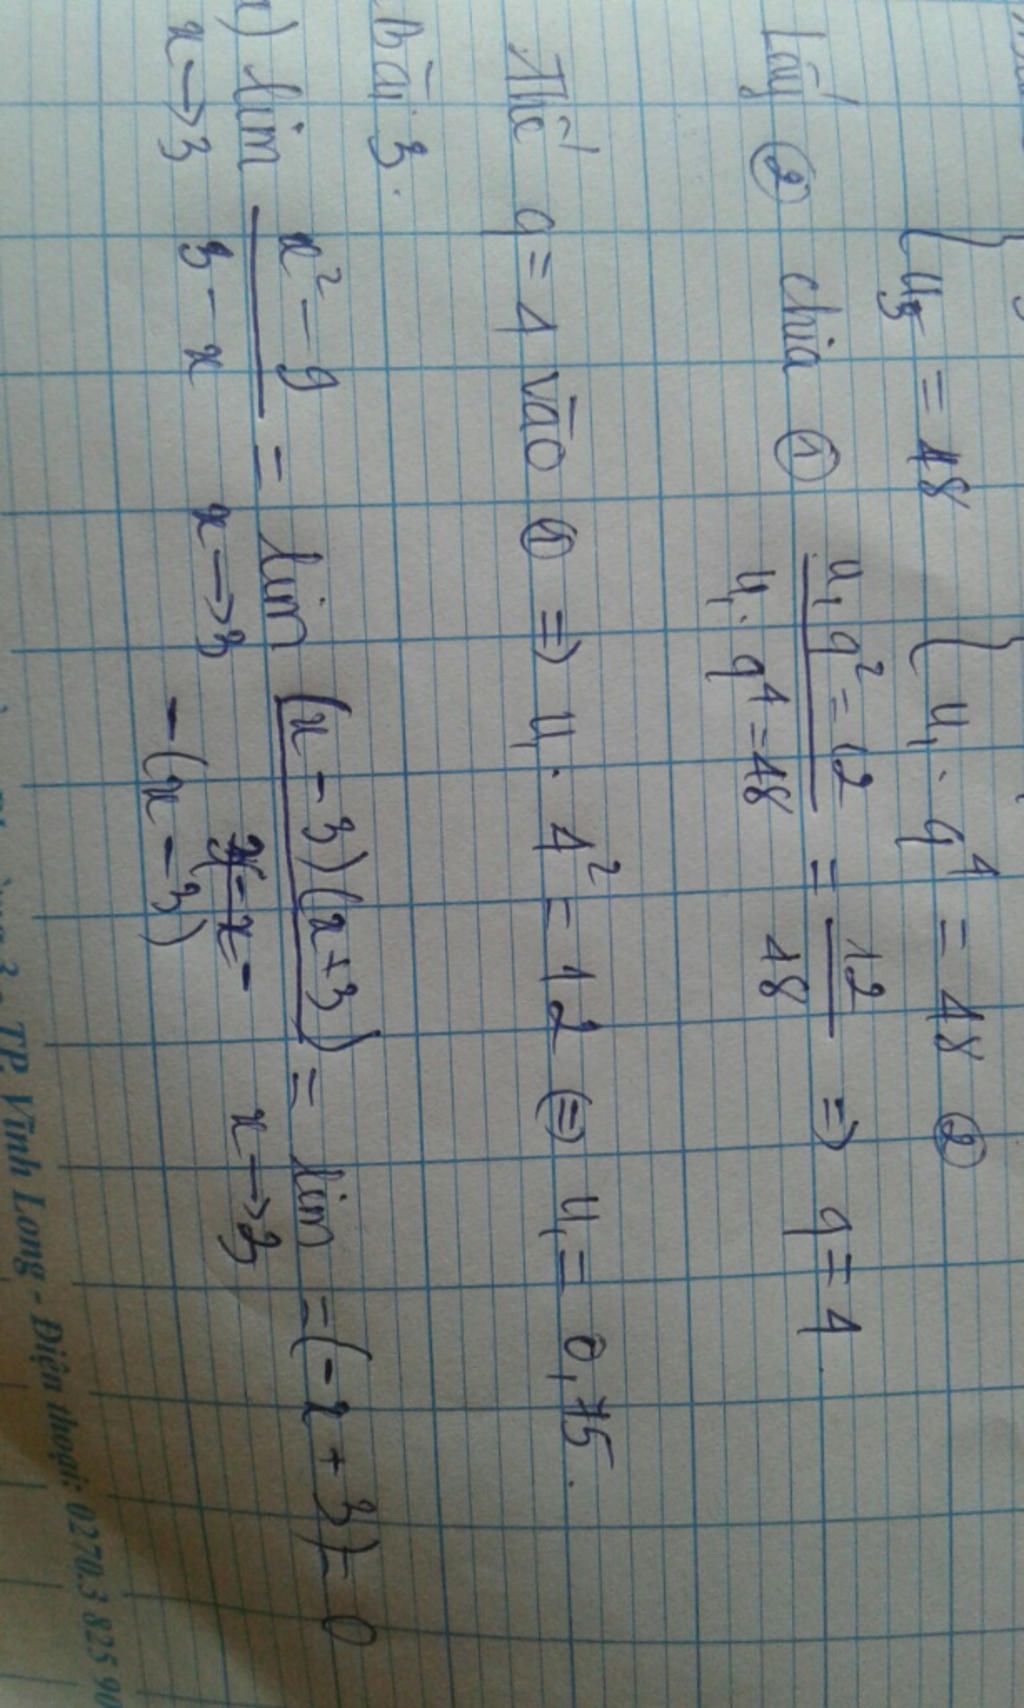 { u₅ = 48 { u₁ . q⁴ = 48 ②
Lấy ② chia ① u₁q² = 12 / u₁ . q⁴ = 48 = 12 / 48 ⇒ q = 4
Thế q = 4 vào ① ⇒ u₁ . 4² = 12 ⇔ u₁ = 0,75.
Bài 3.
a) lim x→3 x² - 9 / 3 - x = lim x→3 (x - 3)(x + 3) / -(x - 3) = lim x→3 = (-x + 3) = 0
TP. Vĩnh Long - Điện thoại: 0270.3 825 90